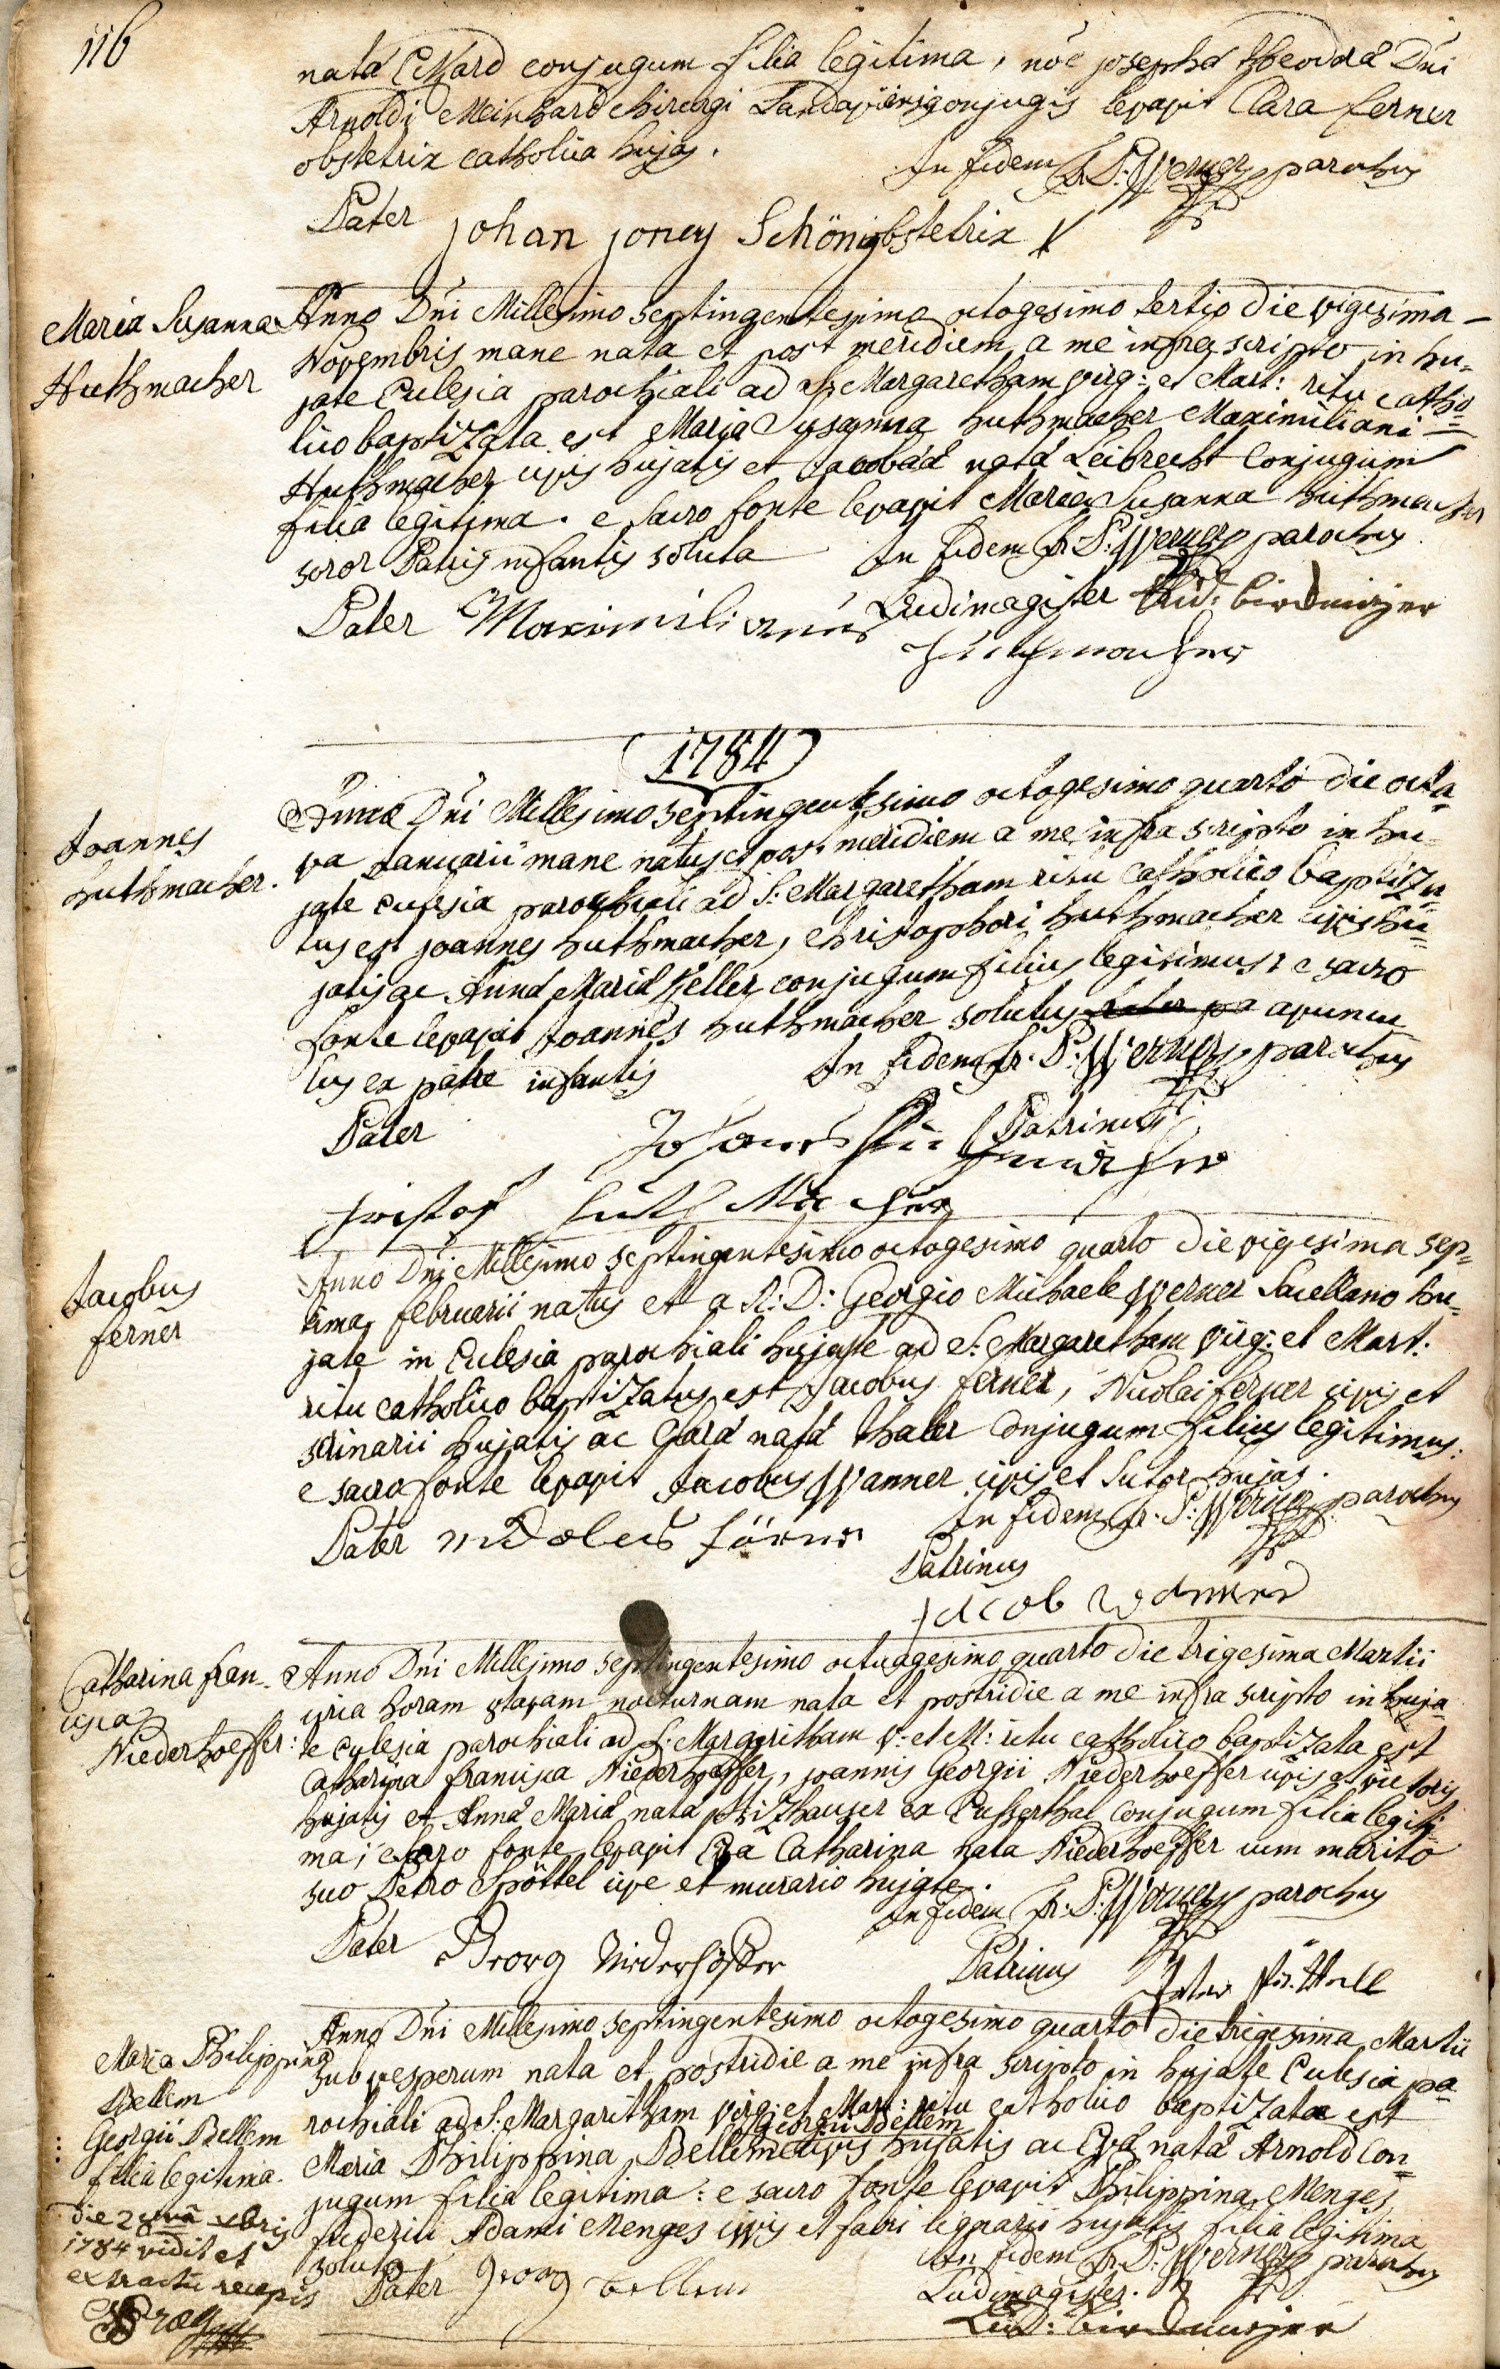 116
natâ Eckard conjugum filia legitima, nõe josephâ theodorâ Dñi
Arnoldi Meinhard chirurgi conjugis levavit Clara ferner
obstetrix catholica hujas.
In fidem fr. P: Werner parochus
Pater johan Schönig obstetrix X
Maria Susanna
Huthmacher
Anno Dñi Millesimo septingentesimo octogesimo tertio die vigesima
Novembris mane nata et post meridiem a me infra scripto in hu-
jate Eclesia parochiali ad S: Margaretham virg: et Mart: ritu catho-
lico baptizata est Maria Susanna huthmacher Maximiliani
Huthmacher civis hujatis et Jacobaâ natâ Leibrecht conjugum
filia legitima. e sacro fonte levavit Maria Susanna huthmacher
soror Patris infantis soluta
In fidem fr. P: Werner parochus
Ludimagister
Pater Maximilianus
Huthmacher
1784
Joannes
huthmacher.
Anno Dñi Millesimo septingentesimo octogesimo quarto die octa-
va Januarii mane natus et post meridiem a me infra scripto in hu-
jate eclesia parochiali ad S: Margaretham ritu catholico baptiza-
tus est joannes huthmacher, christophori huthmacher civis hu-
jatis ac Annâ Mariâ Keller conjugum filius legitimus: e sacro
fonte levavit Joannes huthmacher solutus avuncu
lus ex patre infantis
In fidem fr. P: Werner parochus
Pater
Patrinus
Johannes Hutmacher
Huthmacher
Jacobus
ferner
Anno Dñi Millesimo septingentesimo octogesimo quarto die vigesima sep-
tima februarii natus et a R: D: Georgio Michaele Werner Sacellano hu-
jate in Eclesia parochiali hujate ad S: Margaretham virg: et Mart:
ritu catholico baptizatus est Jacobus ferner, Nicolai ferner civis et
scrinarii hujatis ac Clarâ natâ thaler conjugum filius legitimus:
e sacro fonte levavit Jacobus Wanner civis et Sutor hujas.
In fidem fr. P: Werner parochus
Pater
Patrinus
jacob
Catharina fran-
cisca
Niederhoeffer:
Anno Dñi Millesimo septingentesimo octuagesimo quarto die trigesima Martii
circa horam octavam nocturnam nata et postridie a me infra scripto in huja-
te eclesia parochiali ad S: Margaritham V: et M: ritu catholico baptizata est
Catharina francisca Niederhoeffer, joannis Georgii Niederhoeffer civis et
hujatis et Annâ Mariâ natâ ex Eusserthal conjugum filia legiti-
ma; e sacro fonte levavit Eva Catharina nata Niederhoeffer cum marito
suo Petro Spöttel cive et murario hujate.
In fidem fr: P: Werner parochus
Pater Georg Niederhöffer
Patrinus
Maria Philippina
Bellem
Georgii Bellem
filia legitima.
1784 vidit et
extractu recepis
Anno Dñi Millesimo septingentesimo octogesimo quarto die trigesima Martii
sub vesperum nata et postridie a me infra scripto in hujate Eclesia pa-
rochiali ad S: Margaritham virg: et Mart: ritu catholico baptizata est
Georgii Bellem
Maria Philippina Bellem civis hujatis ac Evâ natâ Arnold con-
jugum filia legitima: e sacro fonte levavit Philippina Menges
friderici Adami Menges civis et fabri lignarii hujatis filia legitima
soluta
In fidem fr. P: Werner parochus
Pater Georg Bellem
Ludimagister.